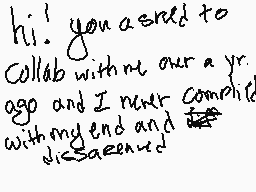 hi! you asked to
collab with me over a yr.
ago and I never complied
with my end and
dissapeared